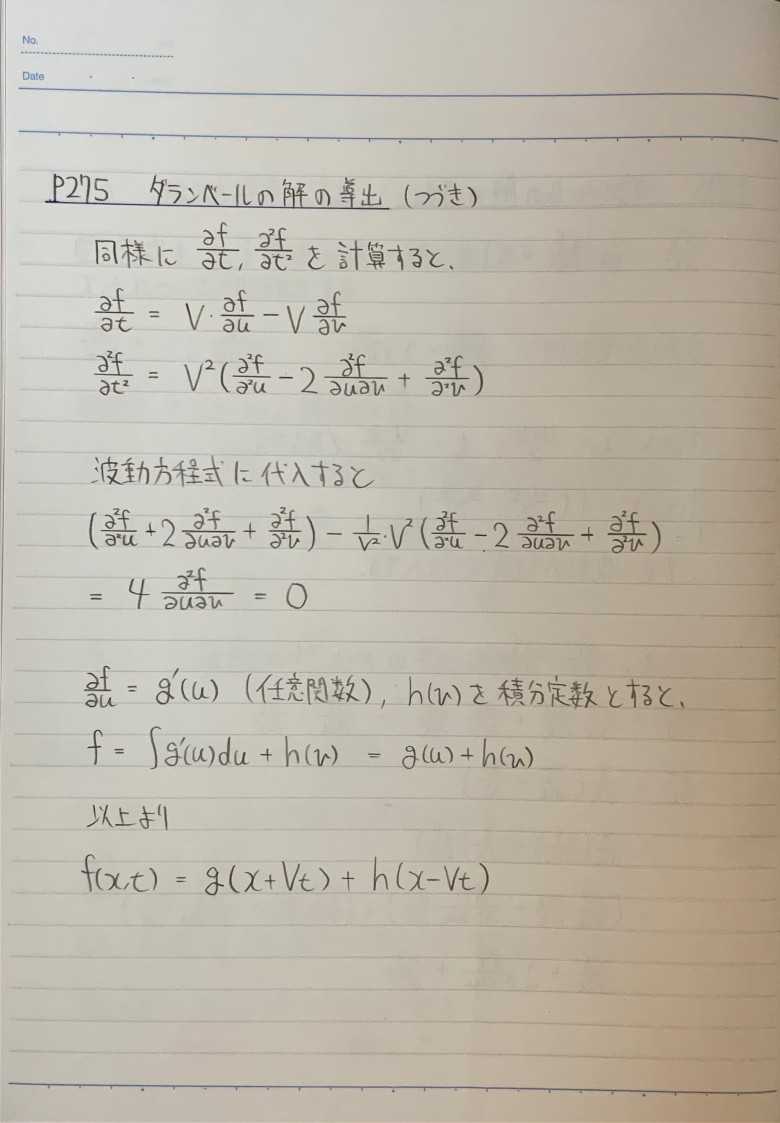 No.
Date
P275 ダランベールの解の導出 (つづき)
同様に ∂f/∂t, ∂²f/∂t² を計算すると、
∂f/∂t = V・∂f/∂u − V ∂f/∂v
∂²f/∂t² = V²(∂²f/∂²u − 2 ∂²f/∂u∂v + ∂²f/∂²v)
波動方程式に代入すると
(∂²f/∂²u + 2 ∂²f/∂u∂v + ∂²f/∂²v) − 1/V²・V²(∂²f/∂²u − 2 ∂²f/∂u∂v + ∂²f/∂²v)
= 4 ∂²f/∂u∂v = 0
∂f/∂u = g'(u) (任意関数), h(v)を積分定数とすると、
f = ∫g'(u)du + h(v) = g(u) + h(v)
以上より
f(x,t) = g(x+Vt) + h(x−Vt)